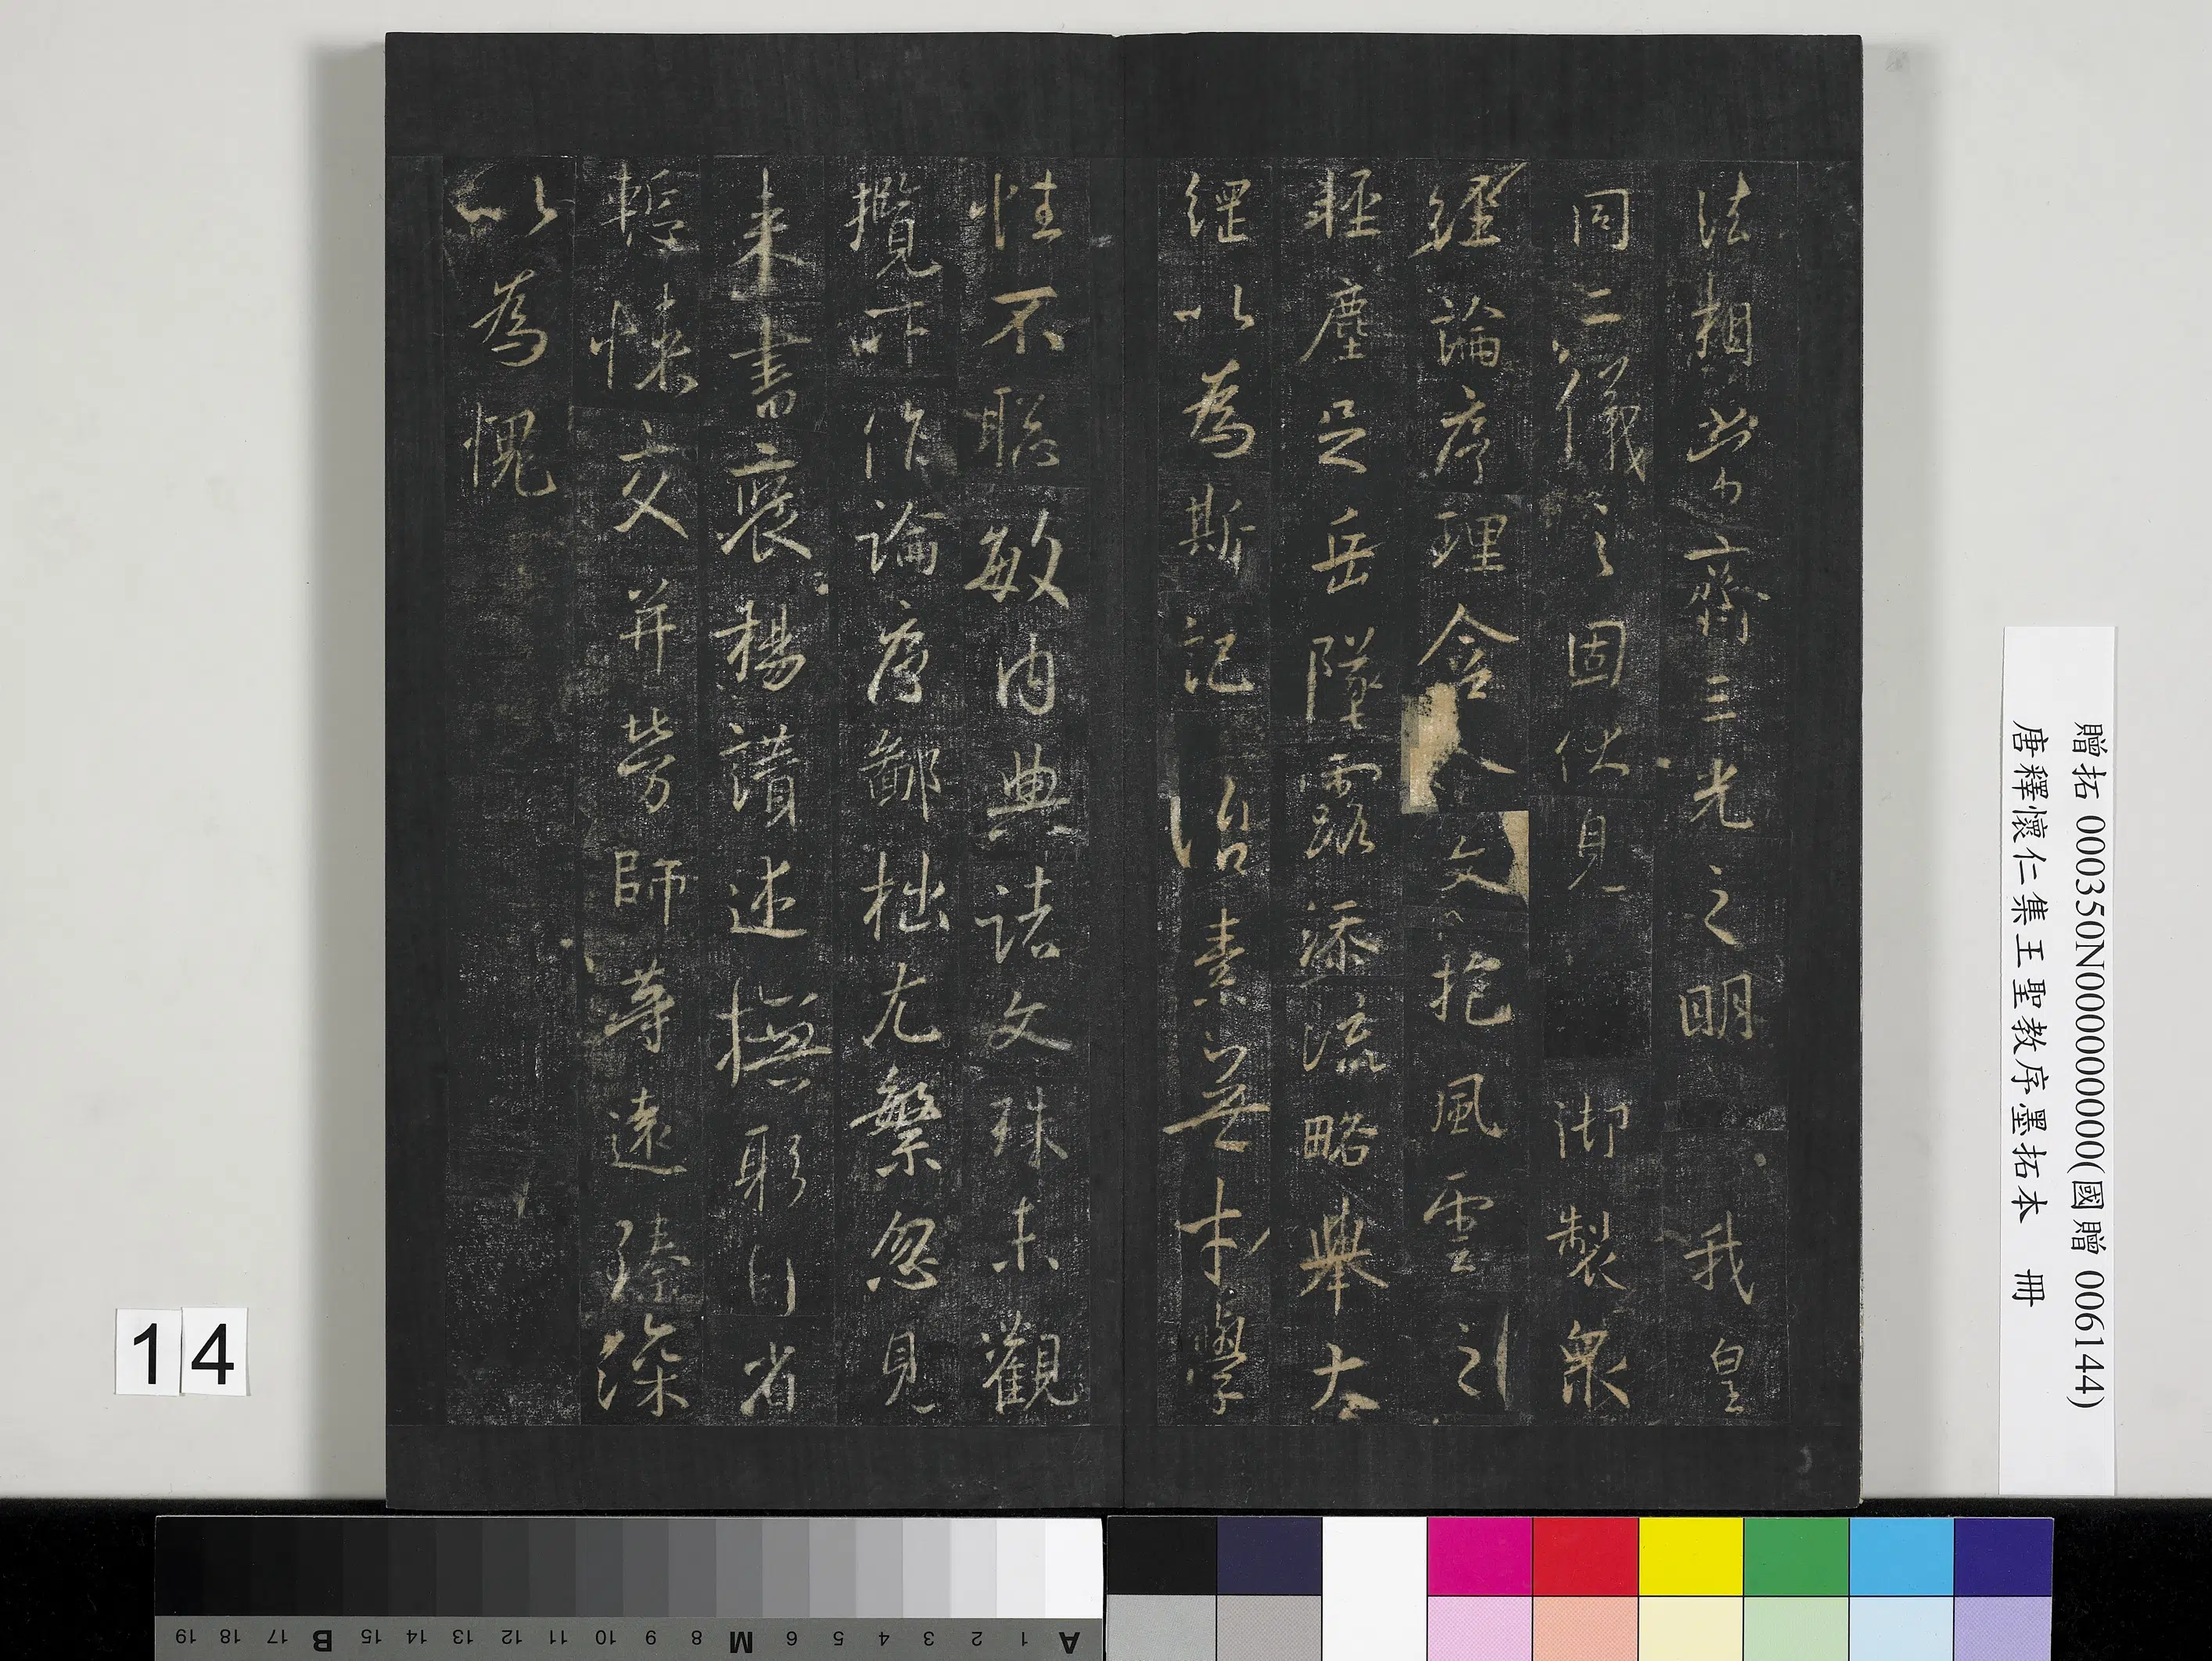 法相常齊三光之明 我皇
同二儀之固伏見 御製衆
經論序理含文抱風雲之
輕塵足岳墜露添流略舉大
綱以為斯記 治素無才學
性不聰敏內典諸文殊未觀
攬所作論序鄙拙尤繁忽見
來書褒揚讚述撫躬自省
慙悚交并勞師等遠臻深
以為愧
贈拓 000350N000000000(國贈 006144)
唐釋懷仁集王聖教序墨拓本 冊
14
A 1 2 3 4 5 6 M 8 9 10 11 12 13 14 15 B 17 18 19